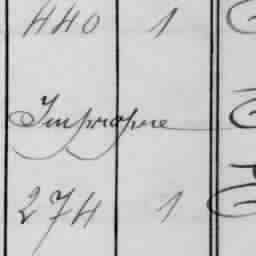 440 1
Impropre
274 1